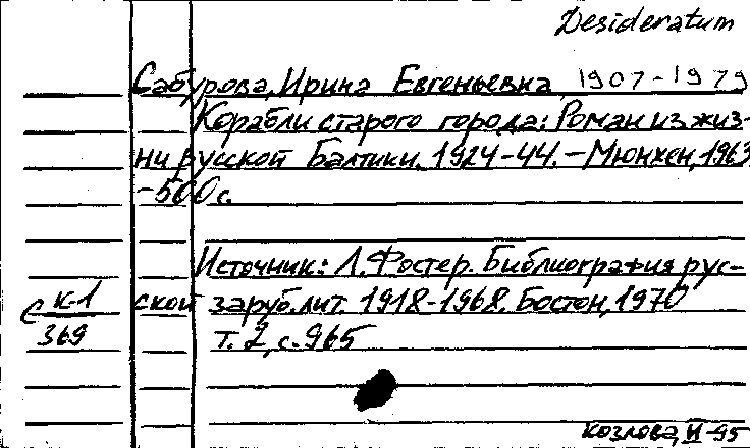 Desideratum
Сабурова, Ирина Евгеньевна 1907-1979
Корабли старого города: Роман из жиз-
ни русской Балтики. 1924-44. – Мюнхен, 1963
-500 с.
Источник: Л. Фостер. Библиография рус-
ской заруб. лит. 1918-1968. Бостон, 1970
т. 2, с. 965
С К-1
369
Козлова, II-95